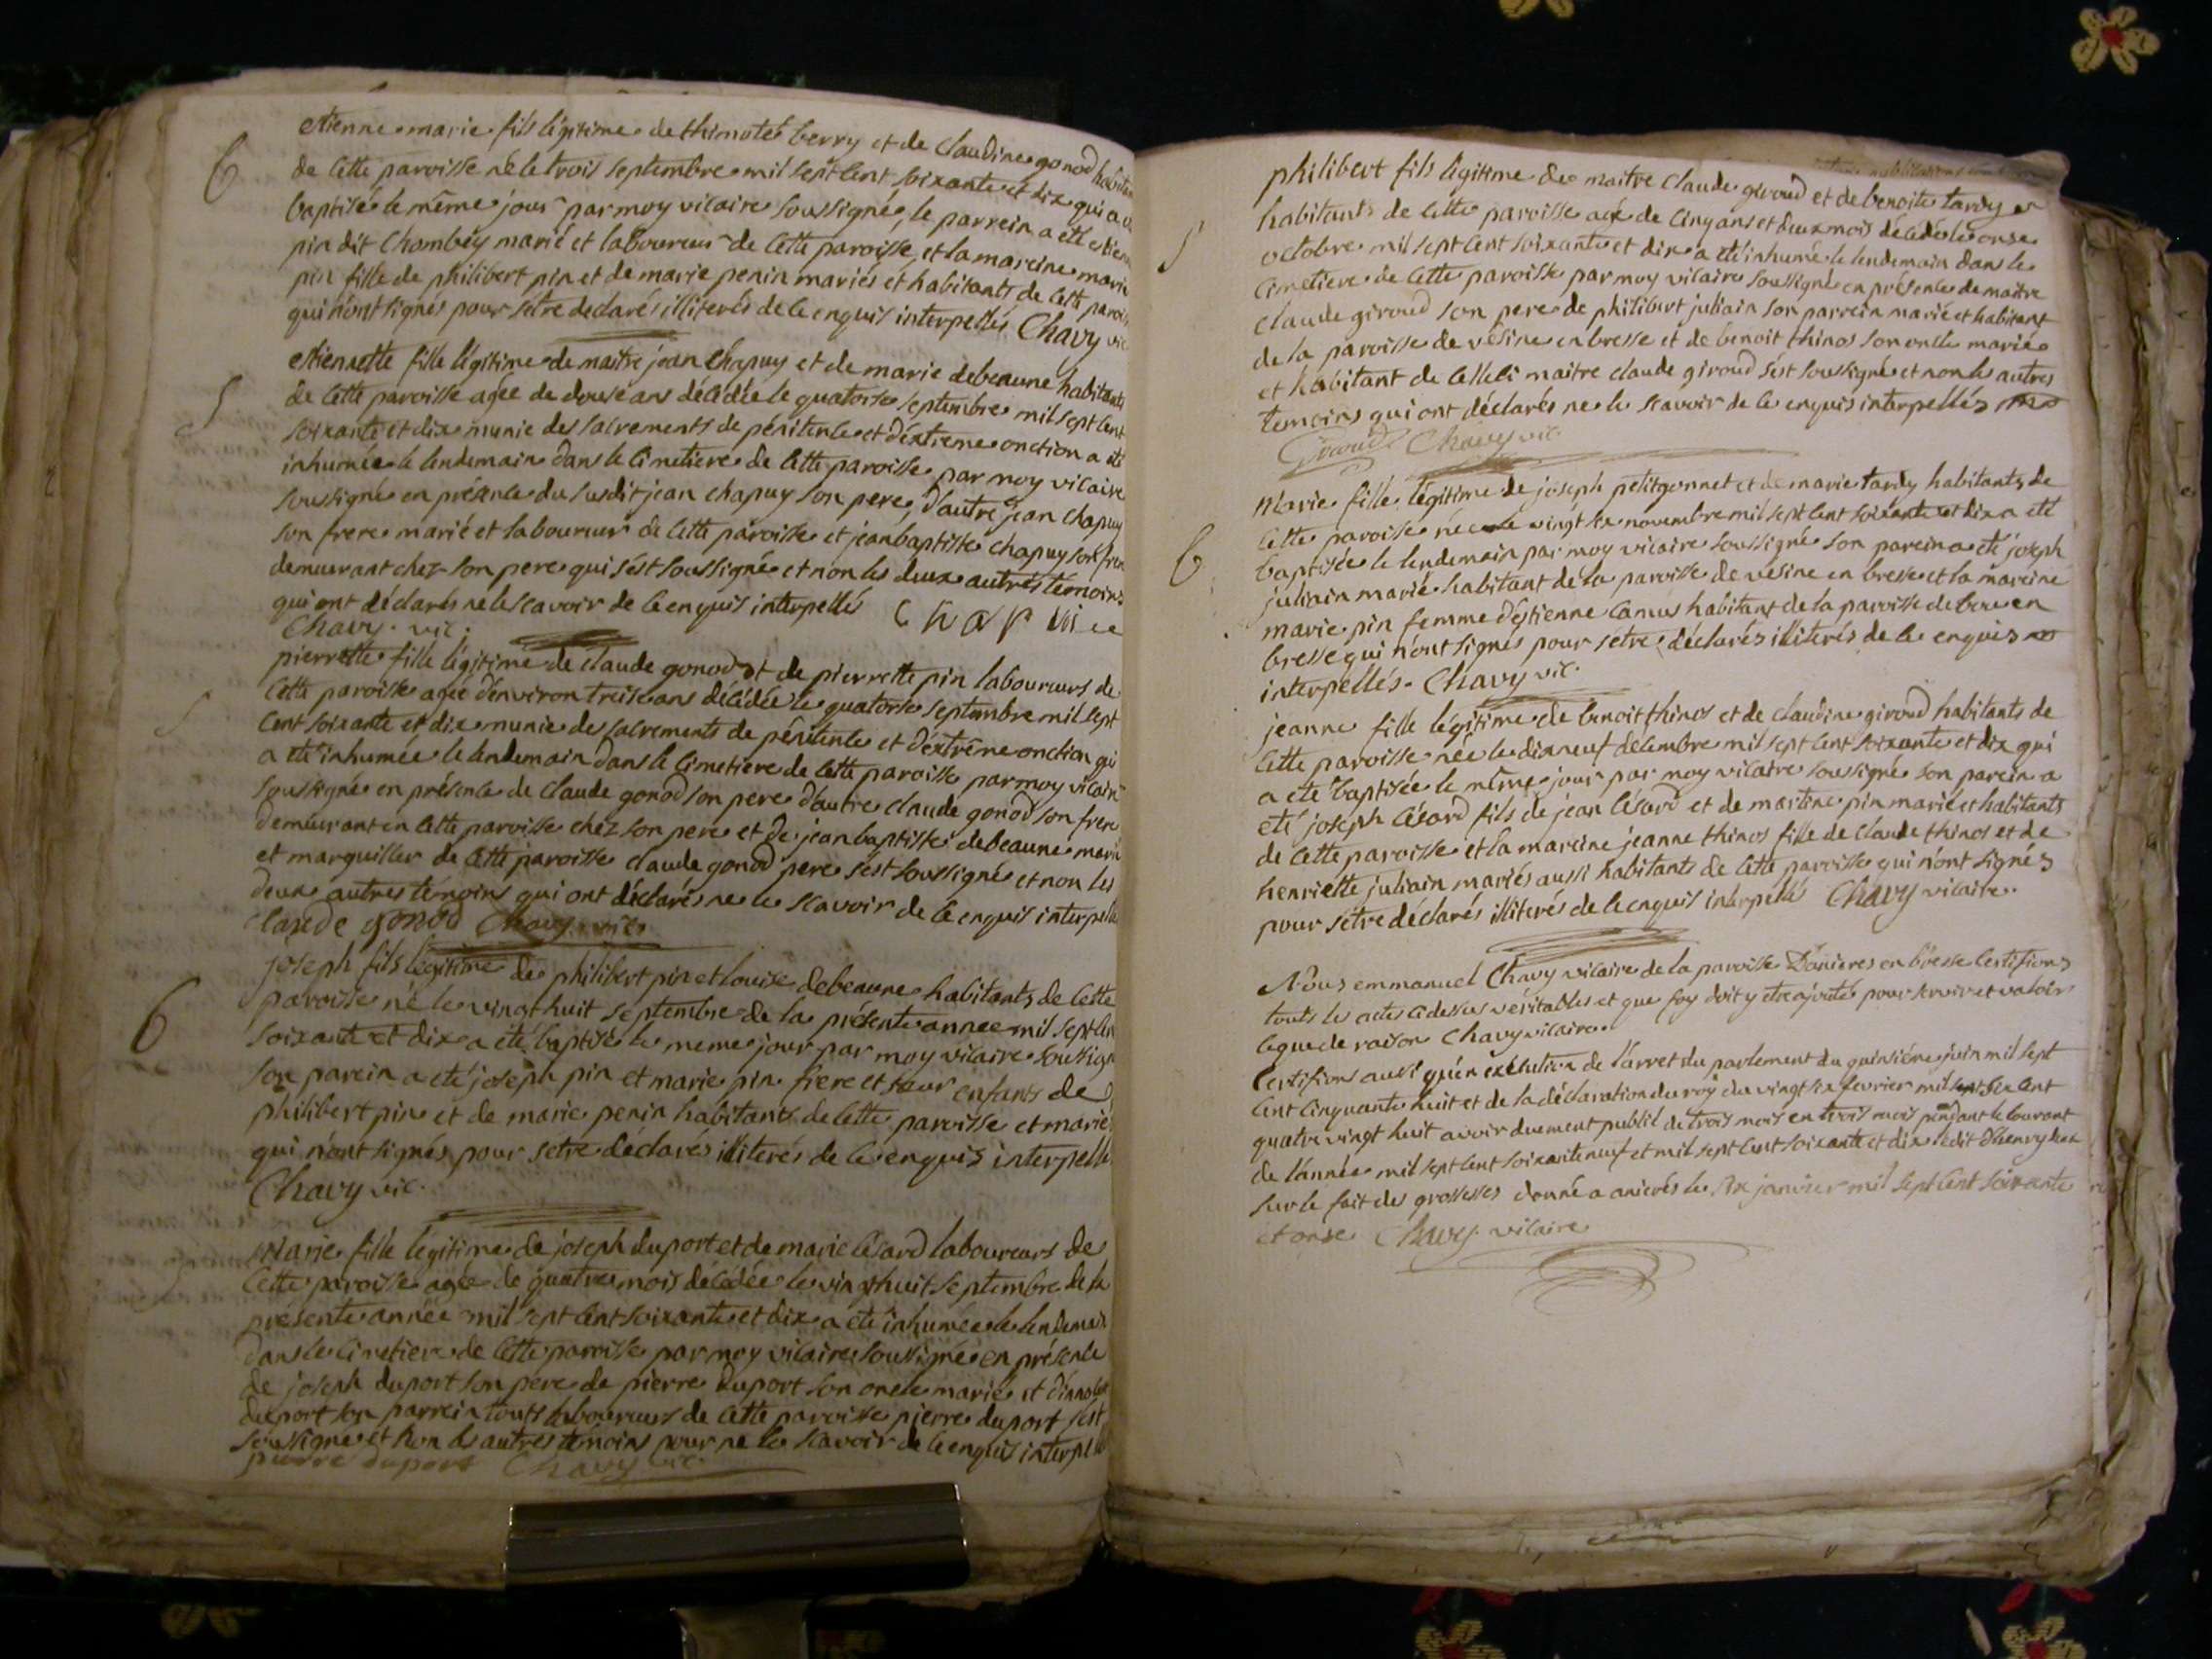 6
etienne marie fils légitime de thimoté berry et de claudine gonod habitan
de cette paroisse né le trois septembre mil sept cent soixante et dix qui a
baptisé le même jour par moy vicaire soussigné, le parrein a eté etien
pin dit Chombéy marié et laboureur de cette paroisse, et la mareine marie
pin fille de philibert pin et de marie penin mariés et habitants de cett parois
qui n'ont signés pour s'etre declarés illiterés de ce enquis interpellés Chavy vic
5
etiennette fille légitime de maître jean Chapuy et de marie debeaune habitants
de cette paroisse agée de douse ans décédée le quatorse septembre mil sept cent
soixante et dix munie des sacrements de pénitence et d'extreme onction a eté
inhumée le lendemain dans le cimetiere de cette paroisse par moy vicaire
soussigné en présence du susdit jean chapuy son pere, d'autre jean chapuy
son frere marié et laboureur de cette paroisse et jeanbaptiste chapuy son frer
demeurant chez son pere qui s'est soussigné et non les deux autres témoins
qui ont déclarés ne le scavoir de ce enquis interpellés
Chavy. vic.
pierrette fille légitime de claude gonod et de pierrette pin laboureurs de
cette paroisse agée d'environ treise ans décédée le quatorse septembre mil sept
cent soixante et dix munie des sacrements de pénitence et d'extrême onction qui
a eté inhumée le lendemain dans le cimetiere de cette paroisse par moy vicair
soussigné en présence de claude gonod son pere d'autre claude gonod son frere
demeurant en cette paroisse chez son pere et de jeanbaptiste debeaune marié
et marguiller de cette paroisse claude gonod pere s'est soussigné et non les
deux autres témoins qui ont déclarés ne le scavoir de ce enquis interpellé
claude gonod Chavy vic
6
joseph fils légitime de philibert pin et louise debeaune habitants de cette
paroisse né le vingt huit septembre de la présente annee mil sept cen
soixante et dix a été baptisé le meme jour par moy vicaire soussign
son parein a eté joseph pin et marie pin frere et sœur enfants de
philibert pin et de marie penin habitants de cette paroisse et mariés
qui n'ont signés pour s'etre déclarés illiterés de ce enquis interpellé
Chavy vic.
Marie fille légitime de joseph duport et de marie Césard laboureurs de
cette paroisse agée de quatre mois décédée le vingt huit septembre de la
présente année mil sept cent soixante et dix a eté inhumée le lendemain
dans le cimetiere de cette paroisse par moy vicaire soussigné en présence
de joseph duport son pere de pierre duport son oncle marié et
duport son parrein touts laboureurs de cette paroisse pierre duport s'est
soussigné et non les autres témoins pour ne le scavoir de ce enquis interpellé
pierre duport Chavy vic.
5
philibert fils légitime de maitre claude giroud et de benoite tardy
habitants de cette paroisse agé de cinq ans et deux mois décédé le onse
octobre mil sept cent soixante et dix a eté inhumé le lendemain dans le
cimetiere de cette paroisse par moy vicaire soussigné en présence de maitre
claude giroud son pere de philibert juliain son parrein marié et habitant
de la paroisse de vésine en bresse et de benoit thinos son oncle marié
et habitant de celleci maitre claude giroud s'est soussigné et non les autres
temoins qui ont déclarés ne le scavoir de ce enquis interpellés
Giroud Chavy vic.
6
Marie fille légitime de joseph petitgonnet et de marie tardy habitants de
cette paroisse née le vingt six novembre mil sept cent soixante et dix a eté
baptisée le lendemain par moy vicaire soussigné son parein a eté joseph
juliain marié habitant de la paroisse de vesine en bresse et la mareine
marie pin femme d'etienne Camus habitant de la paroisse de bou en
bresse qui n'ont signés pour s'etre déclarés illiterés de ce enquis
interpellés. Chavy vic.
jeanne fille légitime de benoit thinos et de claudine giroud habitants de
cette paroisse née le dixneuf décembre mil sept cent soixante et dix qui
a eté baptisée le même jour par moy vicaire soussigné son parein a
eté joseph Césard fils de jean Césard et de martine pin mariés et habitants
de cette paroisse et la mareine jeanne thinos fille de claude thinos et de
henriette juliain mariés aussi habitants de cette paroisse qui n'ont signés
pour s'etre déclarés illiterés de ce enquis interpellés Chavy vicaire.
Nous emmanuel Chavy vicaire de la paroisse D'anieres en bresse certifions
touts les actes cidessus véritables et que foy doit y etre ajouté pour servir et valoir
ce que de raison Chavy vicaire.
Certifions aussi qu'en exécution de l'arret du parlement du quinsiéme juin mil sept
cent cinquante huit et de la déclaration du roy du vingt six fevrier mil six cent
quatre vingt huit avoir duement publié de trois mois en trois mois pendant le courant
de l'année mil sept cent soixante neuf et mil sept cent soixante et dix l'edit d'henry deux
sur le fait des grossesses donné a anierés le six janvier mil sept cent soixante
et onse Chavy. vicaire